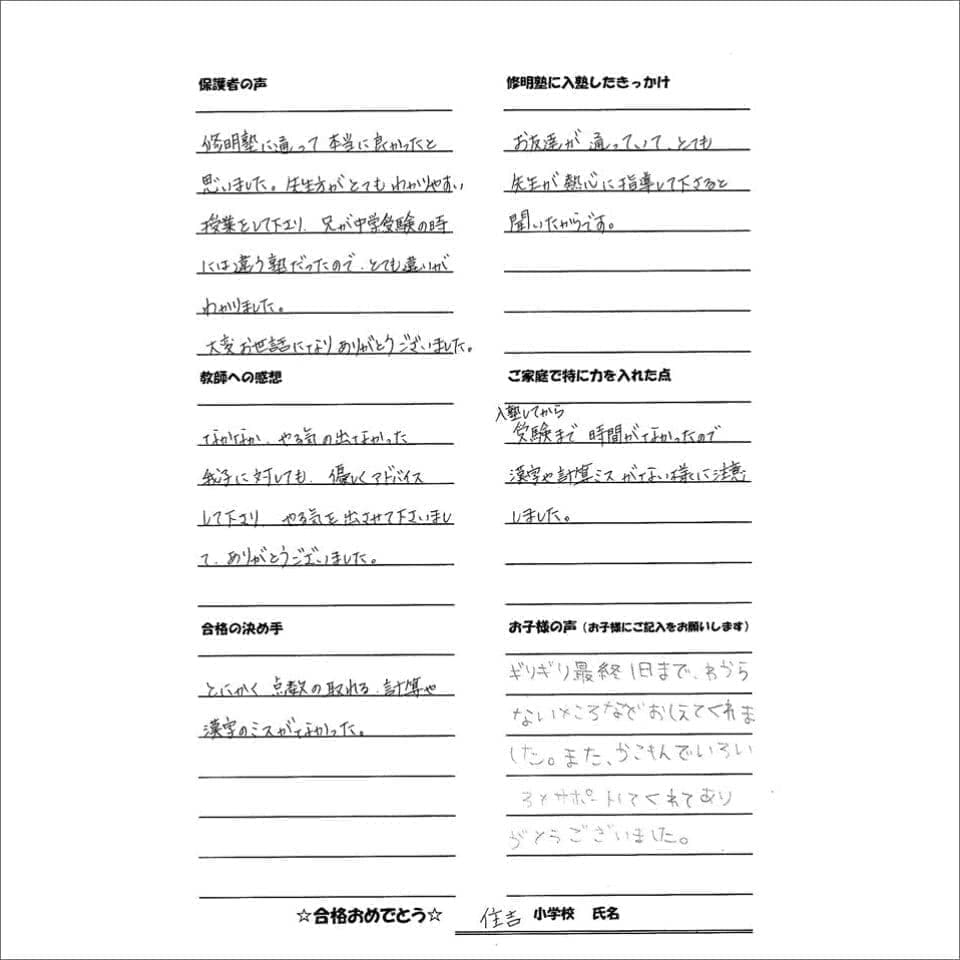 保護者の声
修明塾に通って本当に良かったと
思いました。先生方がとてもわかりやすい
授業をして下さり、兄が中学受験の時
には違う塾だったので、とても違いが
わかりました。
大変お世話になりありがとうございました。
教師への感想
なかなか、やる気の出なかった
我子に対しても、優しくアドバイス
して下さり やる気を出させて下さいまし
て、ありがとうございました。
合格の決め手
とにかく 点数の取れる、計算や
漢字のミスがなかった。
修明塾に入塾したきっかけ
お友達が 通っていて、とても
先生が 熱心に指導して下さると
聞いたからです。
ご家庭で特に力を入れた点
入塾してから
受験まで 時間がなかったので
漢字や計算ミスがない様に注意
しました。
お子様の声（お子様にご記入をお願いします）
ギリギリ最終1日まで、わから
ないところなどおしえてくれま
した。また、かこもんでいろい
ろとサポートしてくれてあり
がとうございました。
☆合格おめでとう☆ 住吉 小学校 氏名